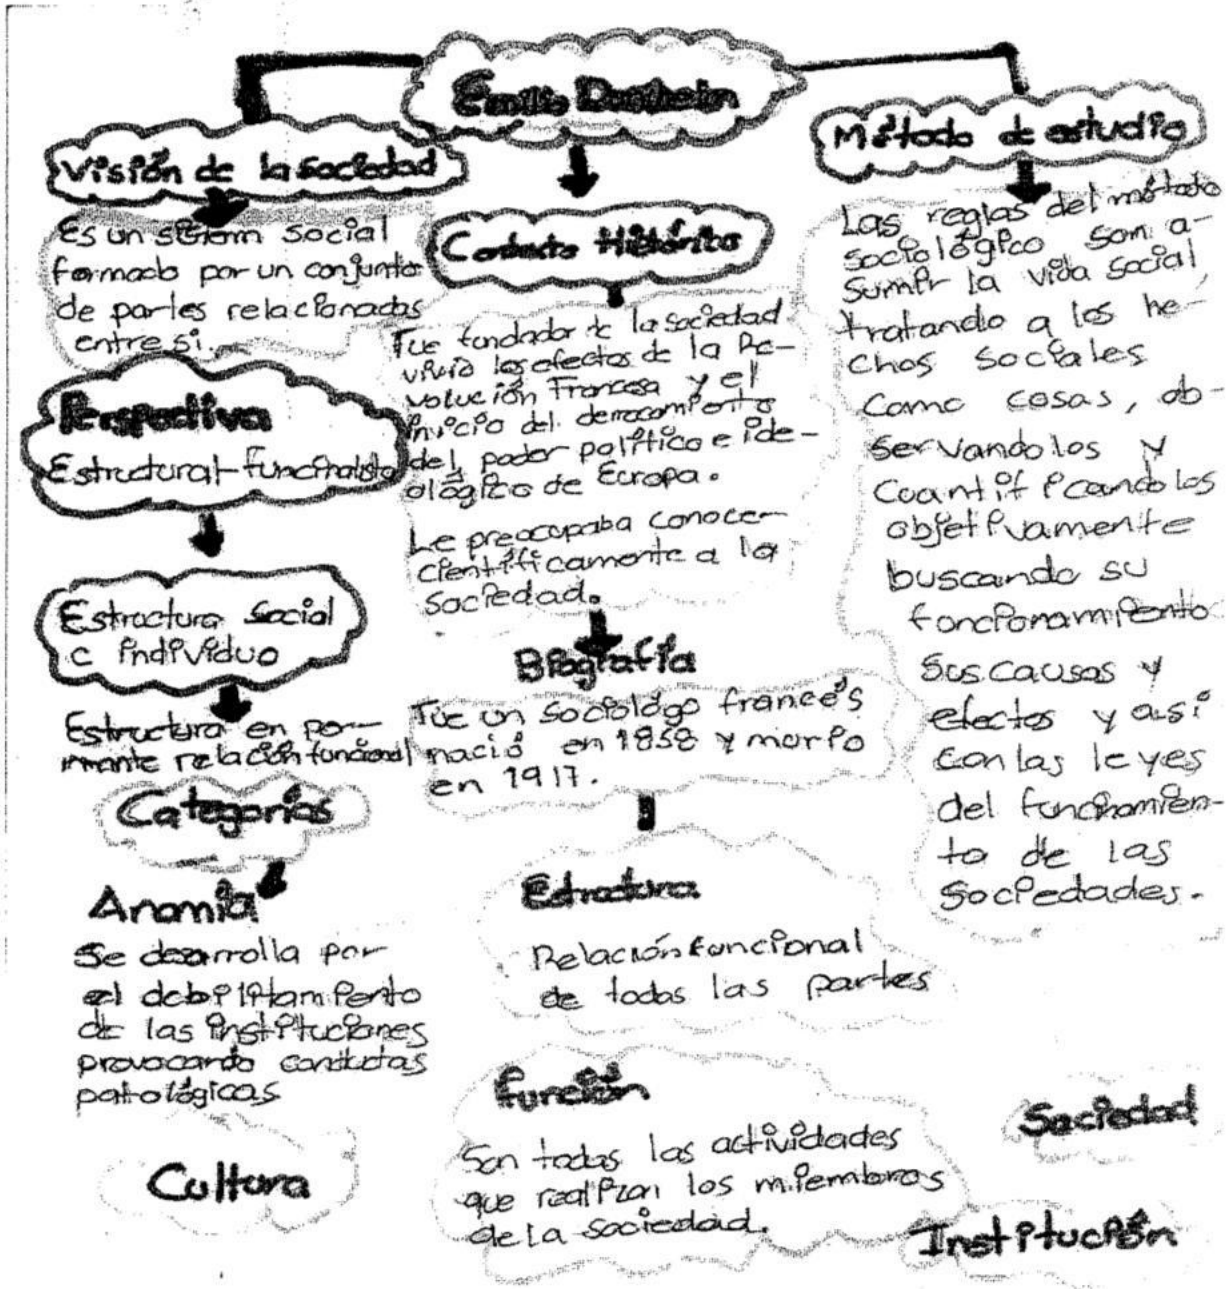 Emilio Durkheim
Visión de la sociedad
Es un sistem social
formado por un conjunto
de partes relacionadas
entre si.
Perspectiva
Estructural-funcionalista
Estructura Social
e individuo
Estructura en per-
manente relación funcional
Categorías
Anomia
Se desarrolla por
el debilitamiento
de las instituciones
provocando conductas
patológicas
Cultura
Contexto Histórico
Fue fundador de la sociedad
vivió los efectos de la Re-
volución Francesa y el
inicio del derrocamiento
del poder político e ide-
ológico de Europa.
Le preocupaba conocer
científicamente a la
sociedad.
Biografía
Fue un sociológo francés
nació en 1858 y murio
en 1917.
Estructura
Relación funcional
de todas las partes
Función
Son todas las actividades
que realizan los miembros
de la sociedad.
Método de estudio
Las reglas del método
sociológico son a-
sumir la vida social,
tratando a los he-
chos sociales
como cosas, ob-
servandolos y
cuantificandolos
objetivamente
buscando su
funcionamiento
sus causas y
efectos y asi
con las leyes
del funcinamien-
to de las
sociedades.
Sociedad
Institución